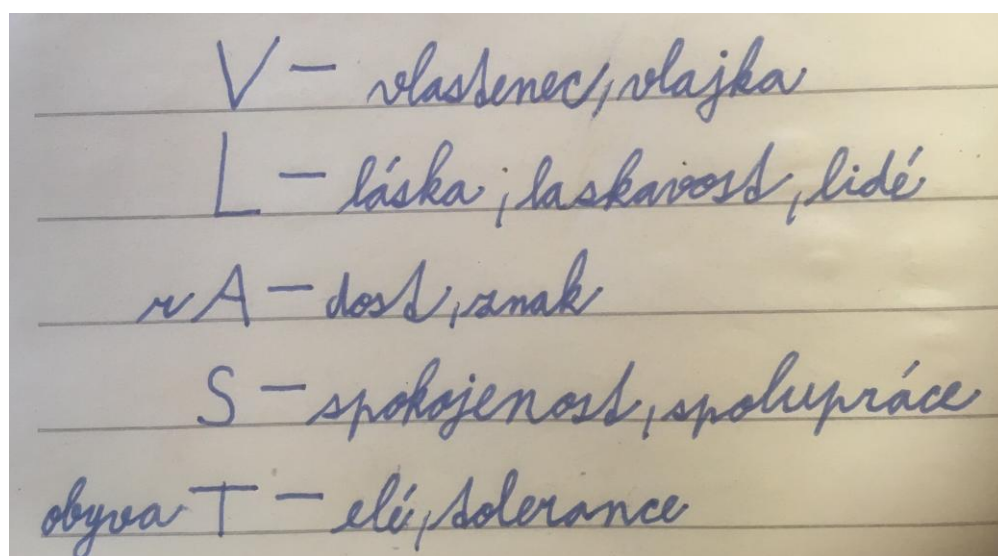 V – vlastenec, vlajka
L – láska, laskavost, lidé
rA – dost, znak
S – spokojenost, spolupráce
obyvaT – elé, tolerance